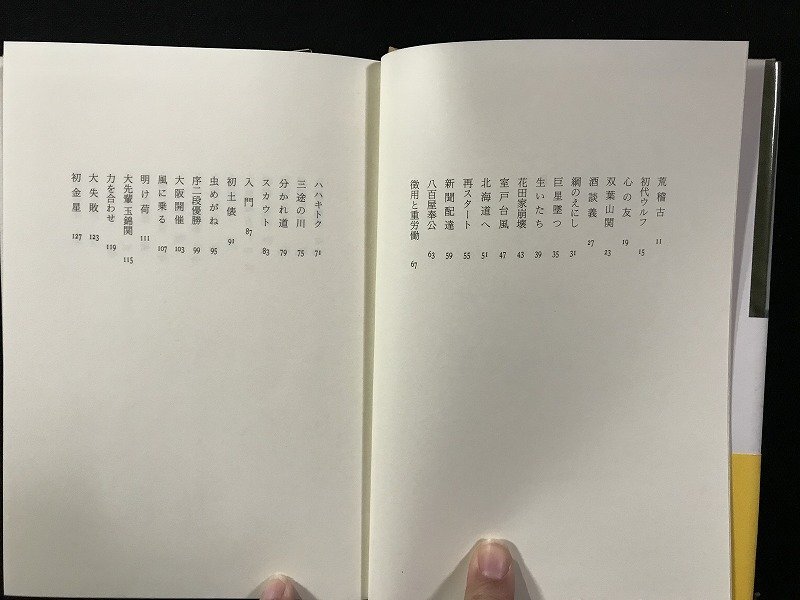 荒稽古 11
初代ウルフ 15
心の友 19
双葉山関 23
酒談義 27
綱のえにし 31
巨星墜つ 35
生いたち 39
花田家崩壊 43
室戸台風 47
北海道へ 51
再スタート 55
新聞配達 59
八百屋奉公 63
徴用と重労働 67
ハハキトク 71
三途の川 75
分かれ道 79
スカウト 83
入門 87
初土俵 91
虫めがね 95
序二段優勝 99
大阪開催 103
風に乗る 107
明け荷 111
大先輩玉錦関 115
力を合わせ 119
大失敗 123
初金星 127